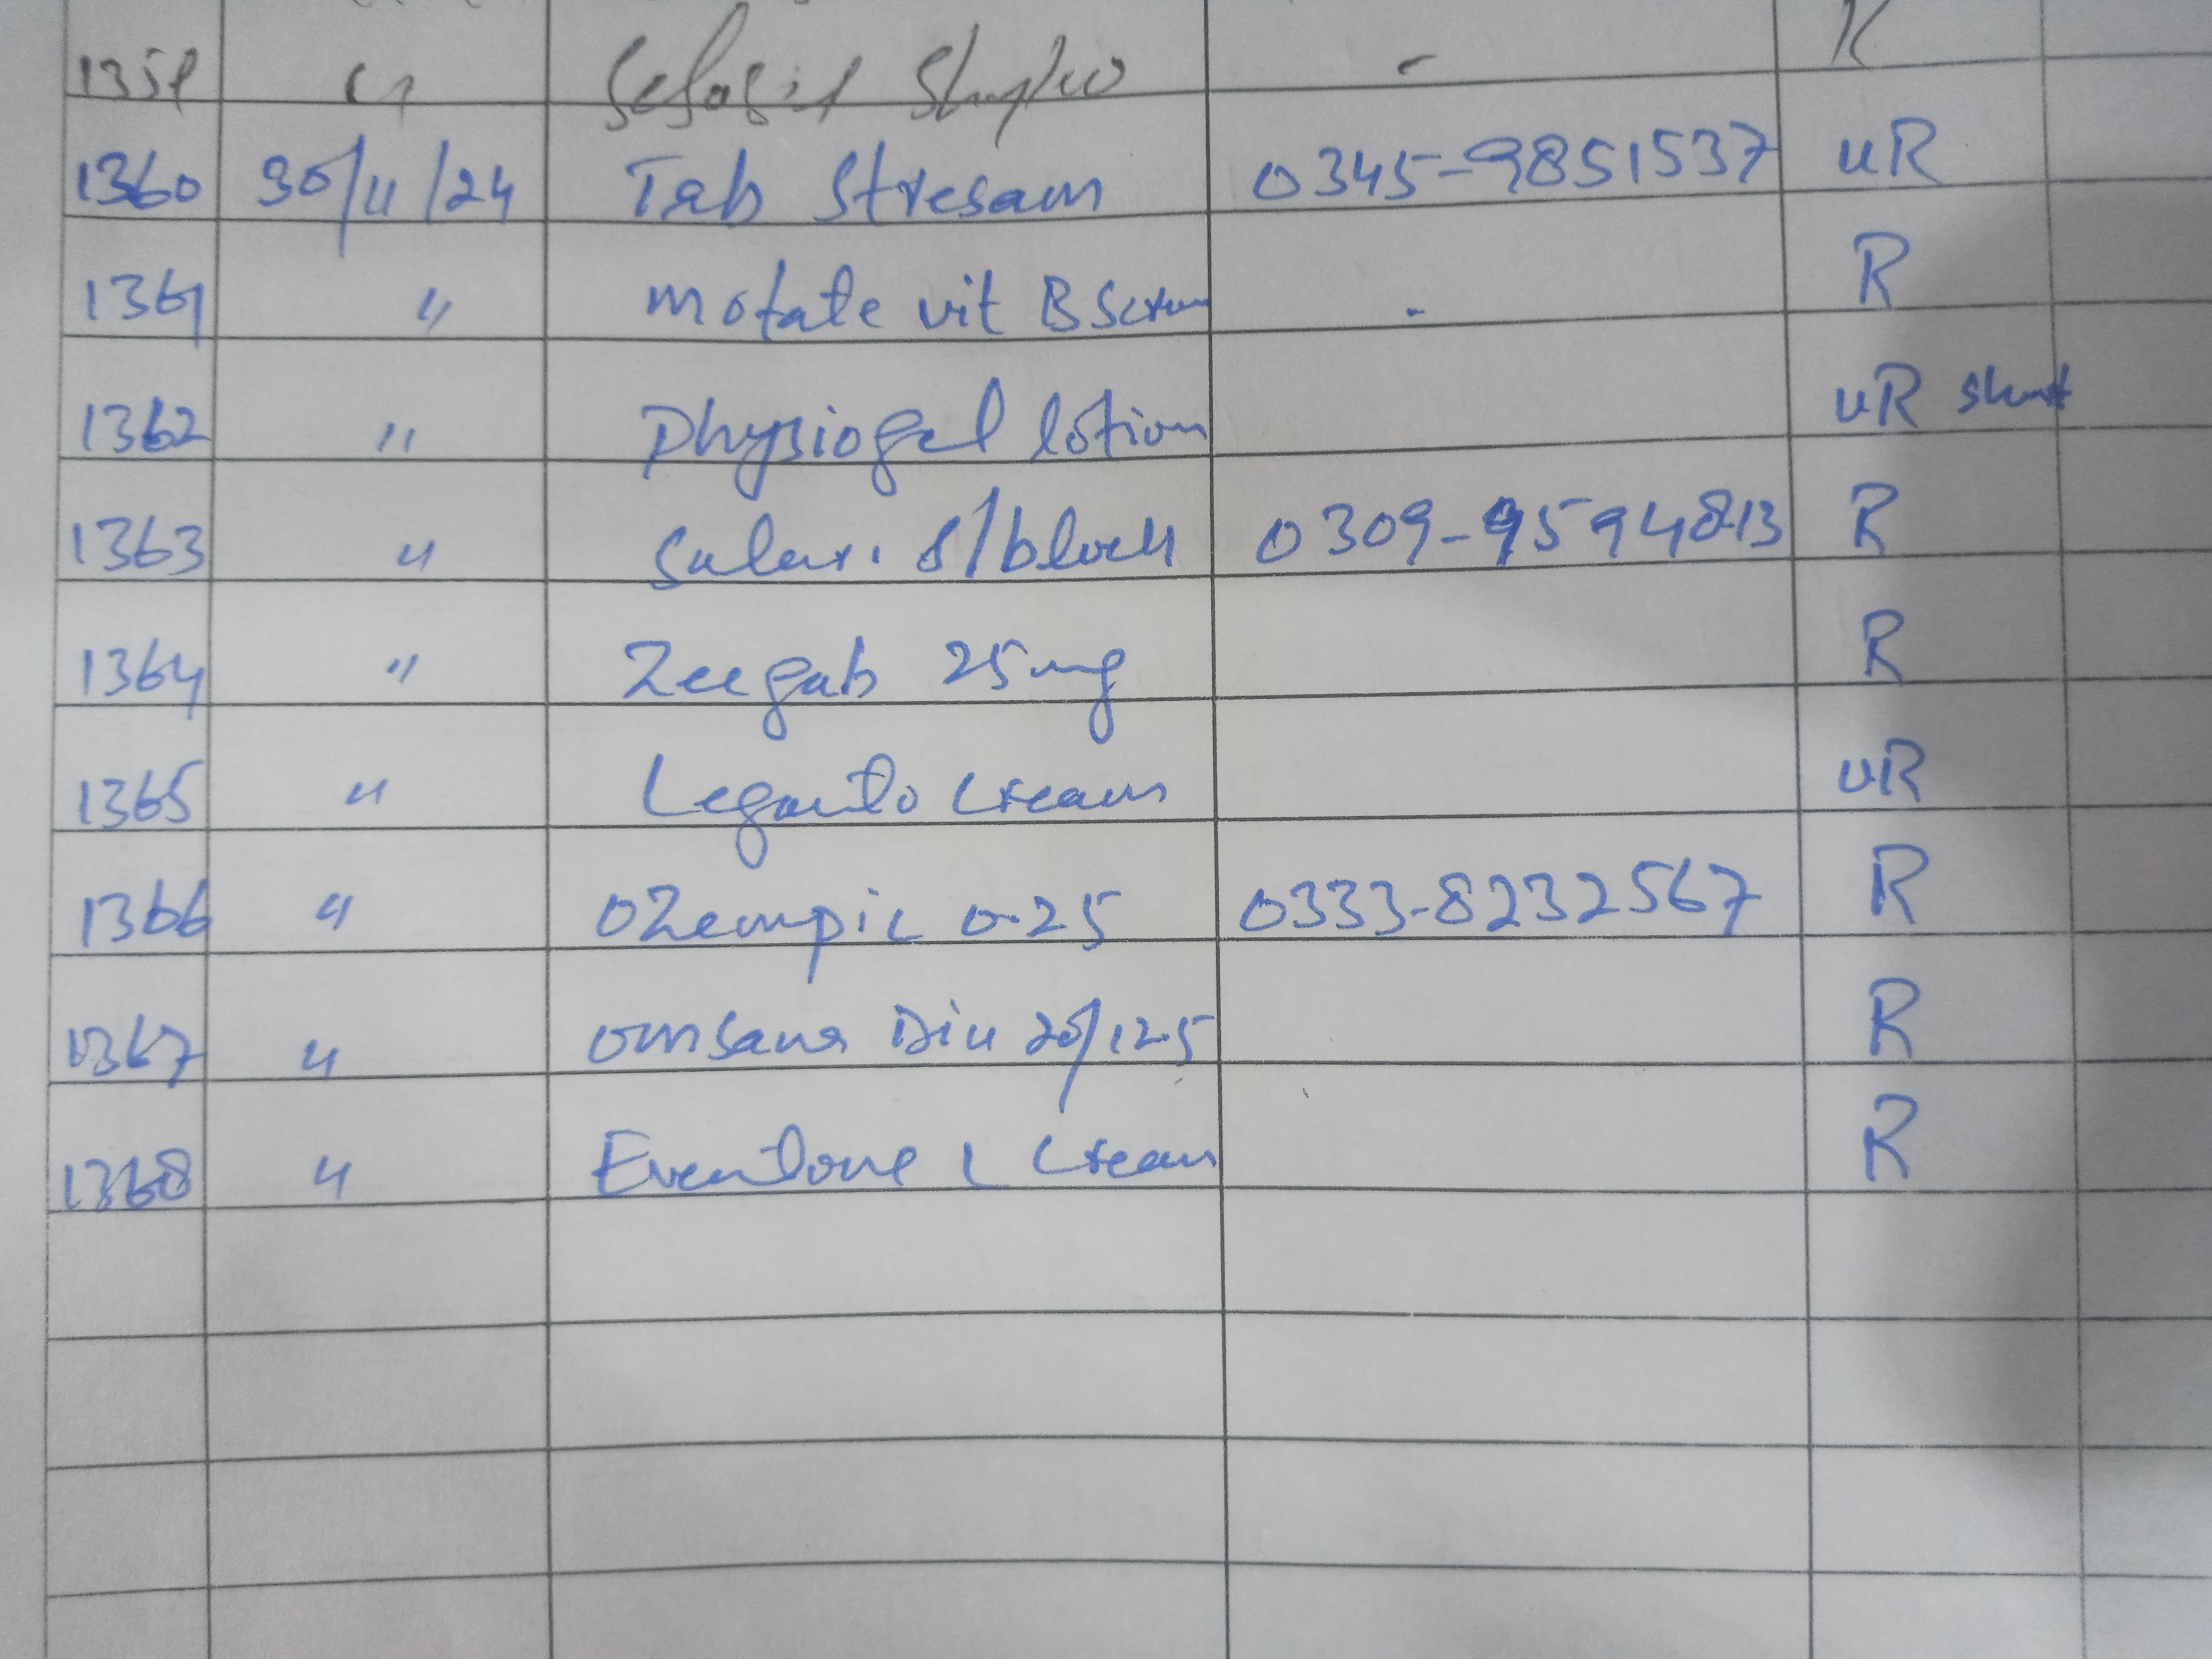 1359 " Shampoo - R
1360 30/11/24 Tab Stresam 0345-9851537 uR
1361 " Mofate vit B Serum - R
1362 " Physiogel lotion uR short
1363 " S/block 0309-9594813 R
1364 " Zeegab 25mg R
1365 " Leganto Cream uR
1366 " OZempic 0.25 0333-8232567 R
1367 " omsana Diu 20/12.5 R
1368 " Eventone C Cream R